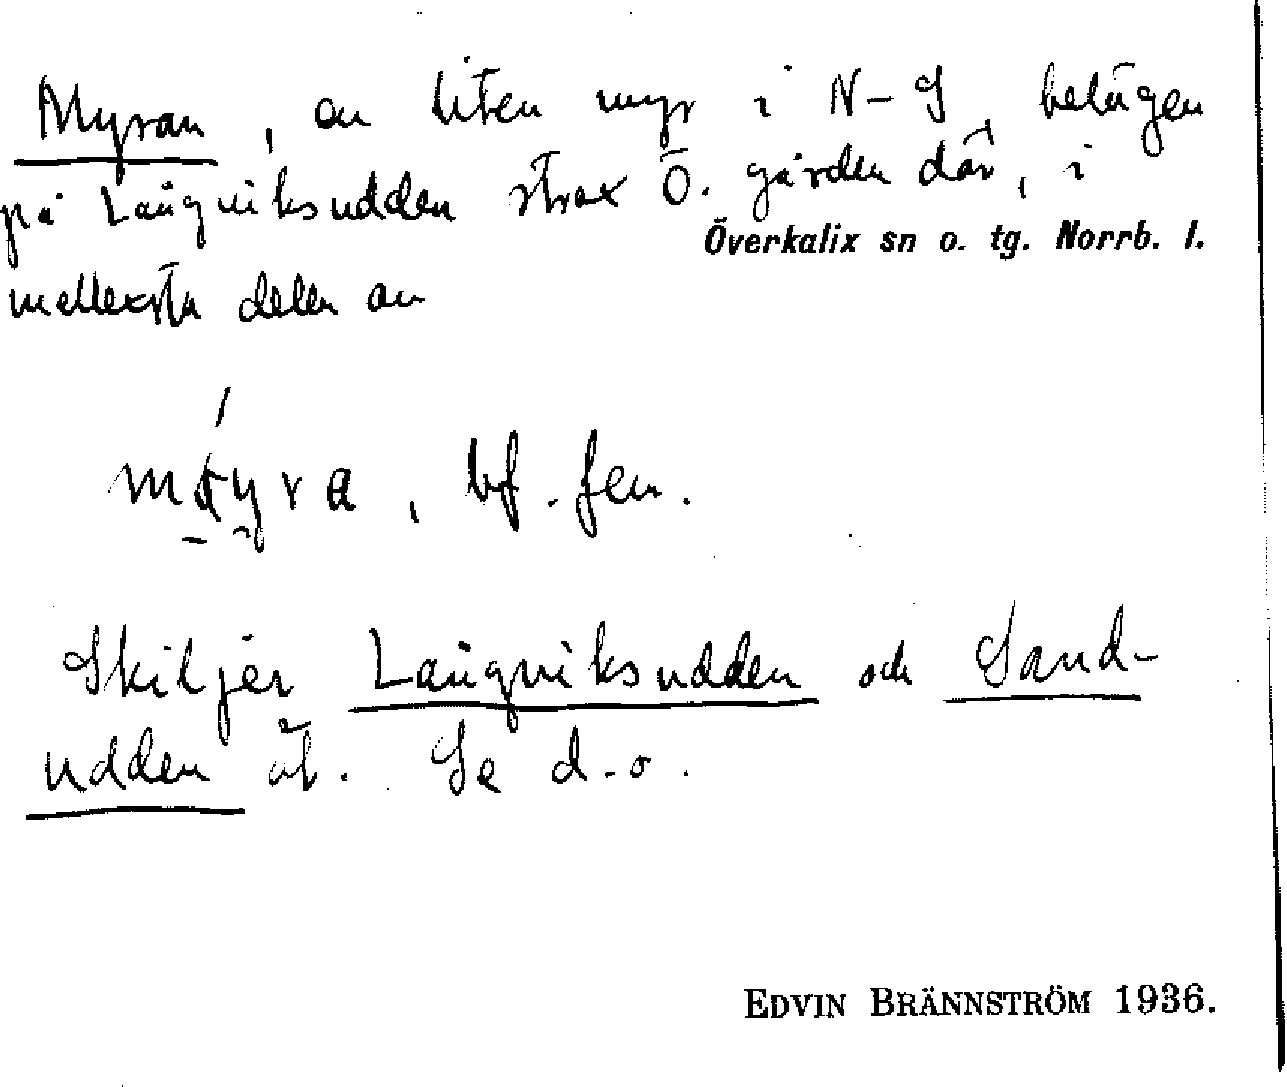 Myran, en liten myr i N-S, belägen
på Långviksudden strax Ö. gården där, i
mellersta delen av
Överkalix sn o. tg. Norrb. l.
bf. fem.
Skiljer Långviksudden och Sand-
udden åt. Se d.o.
EDVIN BRÄNNSTRÖM 1936.